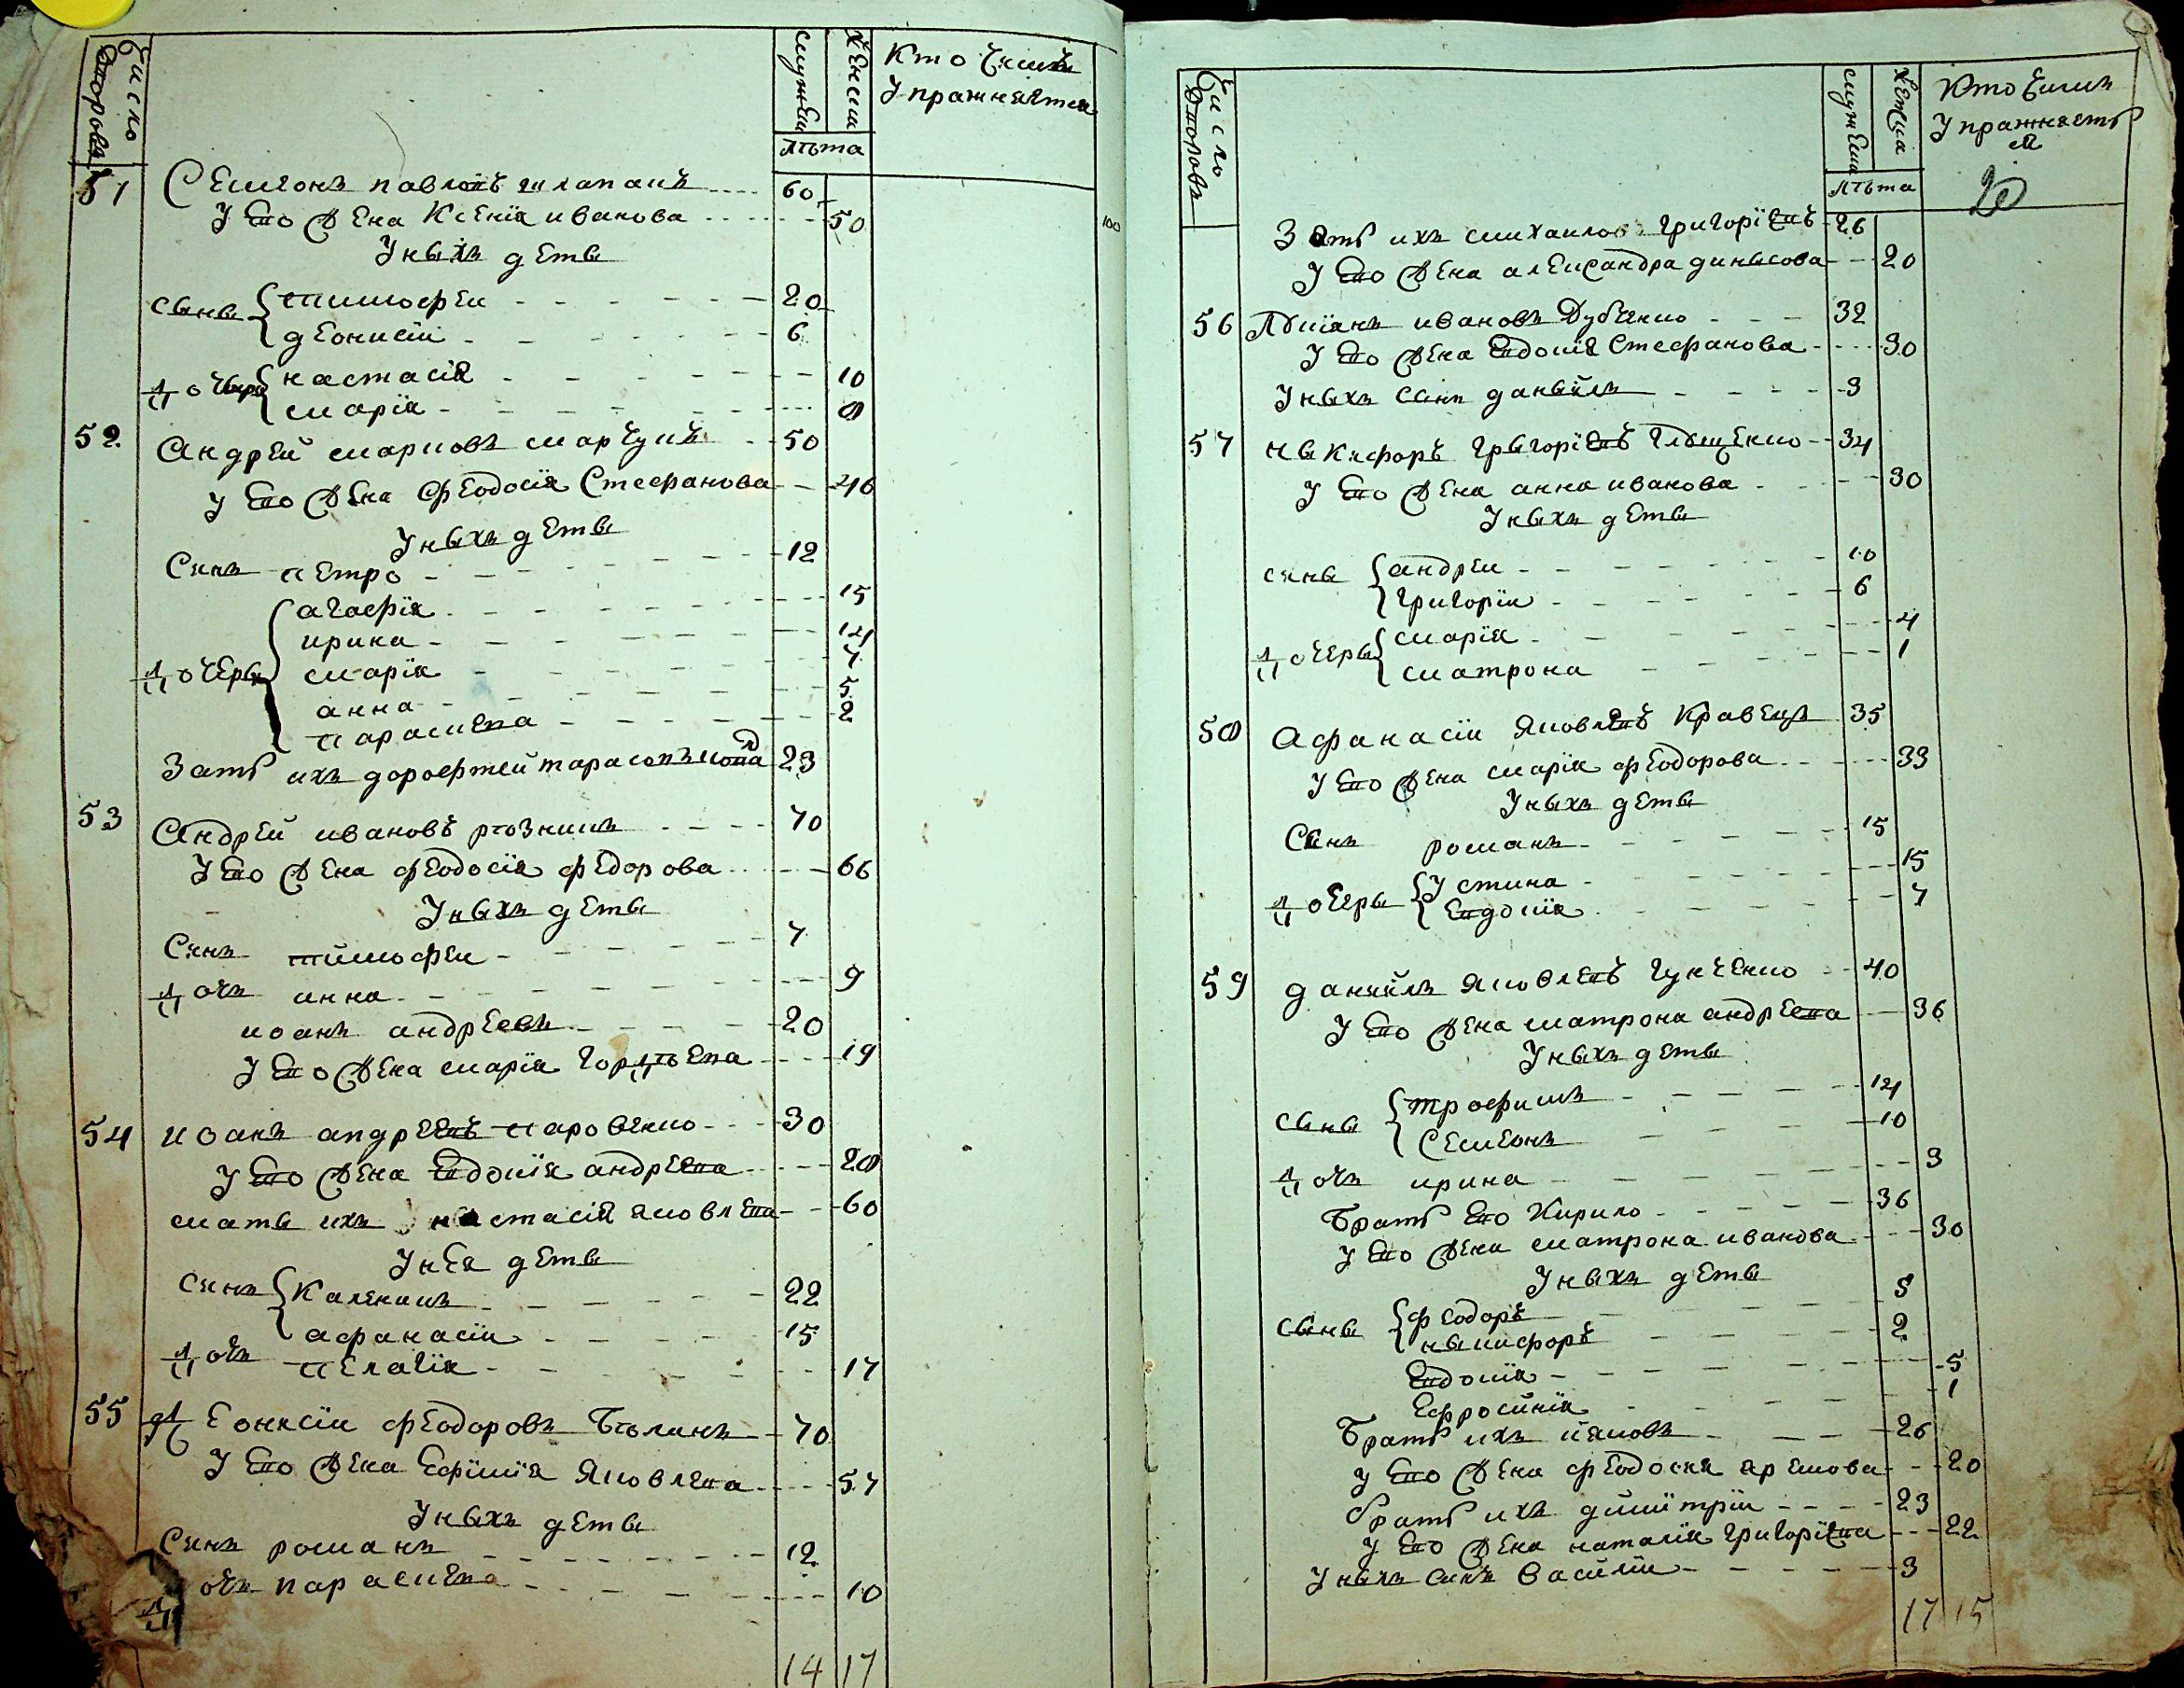 Число Дворовъ
мужеи
женски
Кто чимъ
Упражняется
лѣта
51 Семіонъ павловъ шлапакъ 60
У Его Жена Ксенія иванова 50
У ныхъ деты
сыны тимофеи 20
деонисіи 6
Дочеры настасія 10
марія 8
52 Андрей марковъ марчукъ 50
У Его Жена феодосія Стефанова 46
У ныхъ деты
Синъ петро 12
Дочеры агафія 15
ирина 14
марія 7
анна 5
параскева 2
Зять ихъ дорофтей тарасовъ 23
53 Андрей ивановъ рѣзникъ 70
У Его Жена феодосія федорова 66
У ныхъ деты
Синъ тимофеи 7
Дочъ анна 9
иоанъ андреевъ 20
У Его Жена марія Гордѣева 19
54 иоанъ андреевъ паровенко 30
У Его Жена Евдокія андреева 28
маты ихъ настасія яковлева 60
У нея деты
Синъ Каленикъ 22
афанасіи 15
Дочъ пелагія 17
55 деонисіи феодоровъ Бѣликъ 70
У Его Жена Ефимія яковлева 57
У ныхъ деты
Синъ романъ 12
Дочъ параскева 10
14 17
100
Число Дворовъ
мужеи
женска
Кто чимъ
Упражняеть
ся
лѣта
20
Зять ихъ михаилов Григоріевъ 26
У Его Жена александра динисова 20
56 Лукіянъ ивановъ Дубченко 32
У Его Жена Евдокія Стефанова 30
У ныхъ синъ даныилъ 3
57 ныкифоръ Грыгоріевъ Глущенко 34
У Его Жена анна иванова 30
У ныхъ деты
сины андреи 10
григоріи 6
Дочеры марія 4
матрона 1
58 Афанасіи яковлевъ Кравецъ 35
У Его Жена марія феодорова 33
У ныхъ деты
Синъ романъ 15
Дочеры Устина 15
Евдокія 7
59 даниилъ яковлевъ Гунченко 40
У Его Жена матрона андреева 36
У ныхъ деты
сыны трофимъ 14
Семеонъ 10
Дочъ ирина 3
Братъ Его Кирило 36
У Его Жена матрона иванова 30
У ныхъ деты
сыны феодоръ 5
ныкифоръ 2
Евдокія 5
Ефросинія 1
Братъ ихъ иаковъ 26
у Его Жена феодосия яремова 20
братъ ихъ димитріи 23
у Его Жена наталія григоріева 22
У ныхъ синъ Василіи 3
17 15